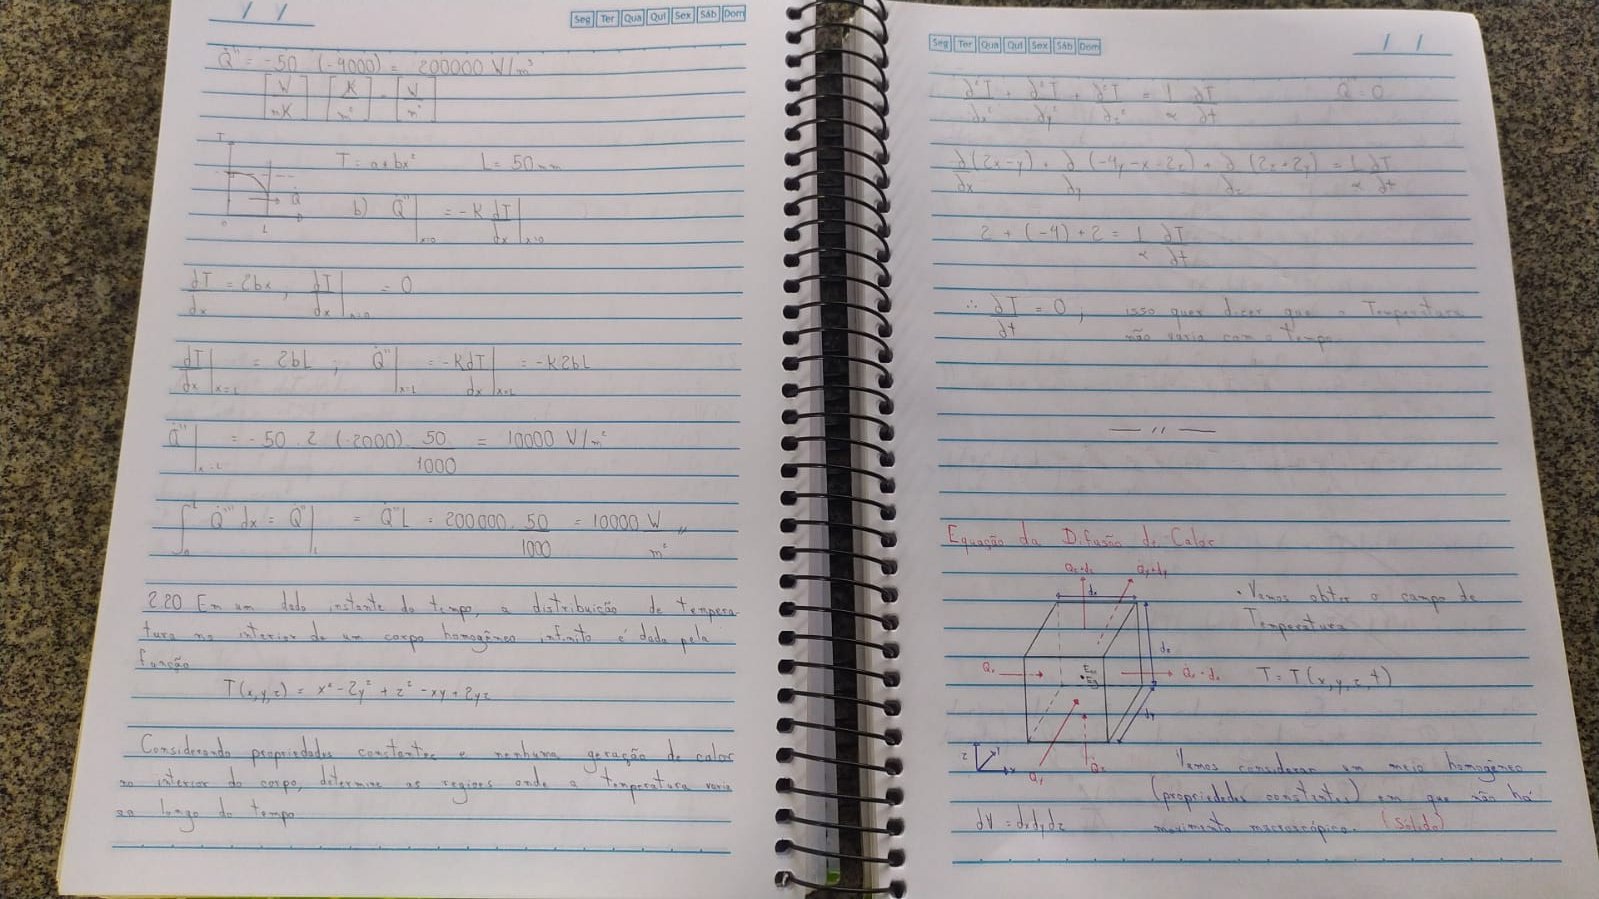 / /
Seg Ter Qua Qui Sex Sáb Dom
Q̇''' = -50 (-4000) = 200000 W/m³
[W/mK] [K/m²] = [W/m³]
T
T = a+bx² L = 50mm
Q̇
0 L
b) Q̇''|x=0 = -K dT/dx|x=0
dT/dx = 2bx, dT/dx|x=0 = 0
dT/dx|x=L = 2bL ; Q̇''|x=L = -K dT/dx|x=L = -K2bL
Q̇''|x=L = -50 . 2 (-2000) . 50/1000 = 10000 W/m²
∫₀ᴸ Q̇''' dx = Q̇''|L = Q̇'''L = 200000 . 50/1000 = 10000 W/m² //
2.20 Em um dado instante do tempo, a distribuição de tempera-
tura no interior de um corpo homogêneo infinito é dada pela
função
T(x,y,z) = x² - 2y² + z² - xy + 2yz
Considerando propriedades constantes e nenhuma geração de calor
no interior do corpo, determine as regiões onde a temperatura varia
ao longo do tempo
Seg Ter Qua Qui Sex Sáb Dom
/ /
∂²T/∂x² + ∂²T/∂y² + ∂²T/∂z² = 1/α ∂T/∂t Q̇ = 0
∂/∂x (2x-y) + ∂/∂y (-4y-x+2z) + ∂/∂z (2z+2y) = 1/α ∂T/∂t
2 + (-4) + 2 = 1/α ∂T/∂t
∴ ∂T/∂t = 0 ; isso quer dizer que a Temperatura
não varia com o tempo
— // —
Equação da Difusão de Calor
Qz+dz Qy+dy
dx
• Vamos obter o campo de
Temperatura
dz
Qx Q̇x+dx
T = T(x,y,z,t)
dy
z y x
Qy Q̇z
Vamos considerar um meio homogêneo
(propriedades constantes) em que não há
dV = dxdydz
movimento macroscópico. (sólido)